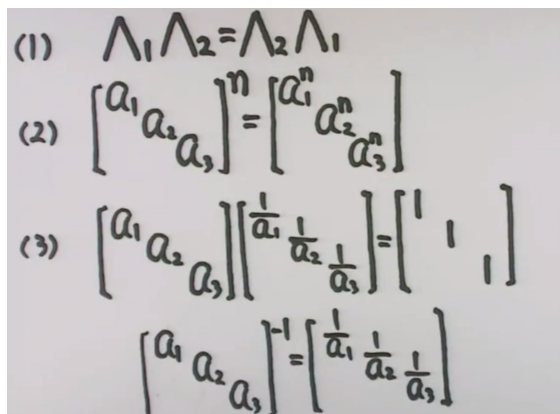 (1) Λ₁Λ₂=Λ₂Λ₁
(2) [a₁ a₂ a₃]ⁿ=[a₁ⁿ a₂ⁿ a₃ⁿ]
(3) [a₁ a₂ a₃][1/a₁ 1/a₂ 1/a₃]=[1 1 1]
[a₁ a₂ a₃]⁻¹=[1/a₁ 1/a₂ 1/a₃]